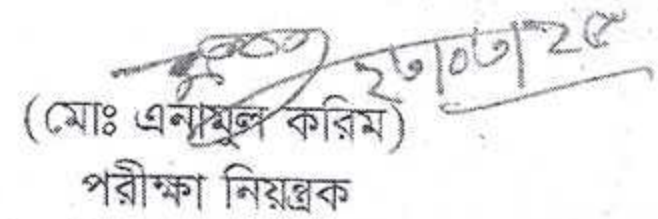 ২৩|০৩|২৫
(মোঃ এনামুল করিম)
পরীক্ষা নিয়ন্ত্রক